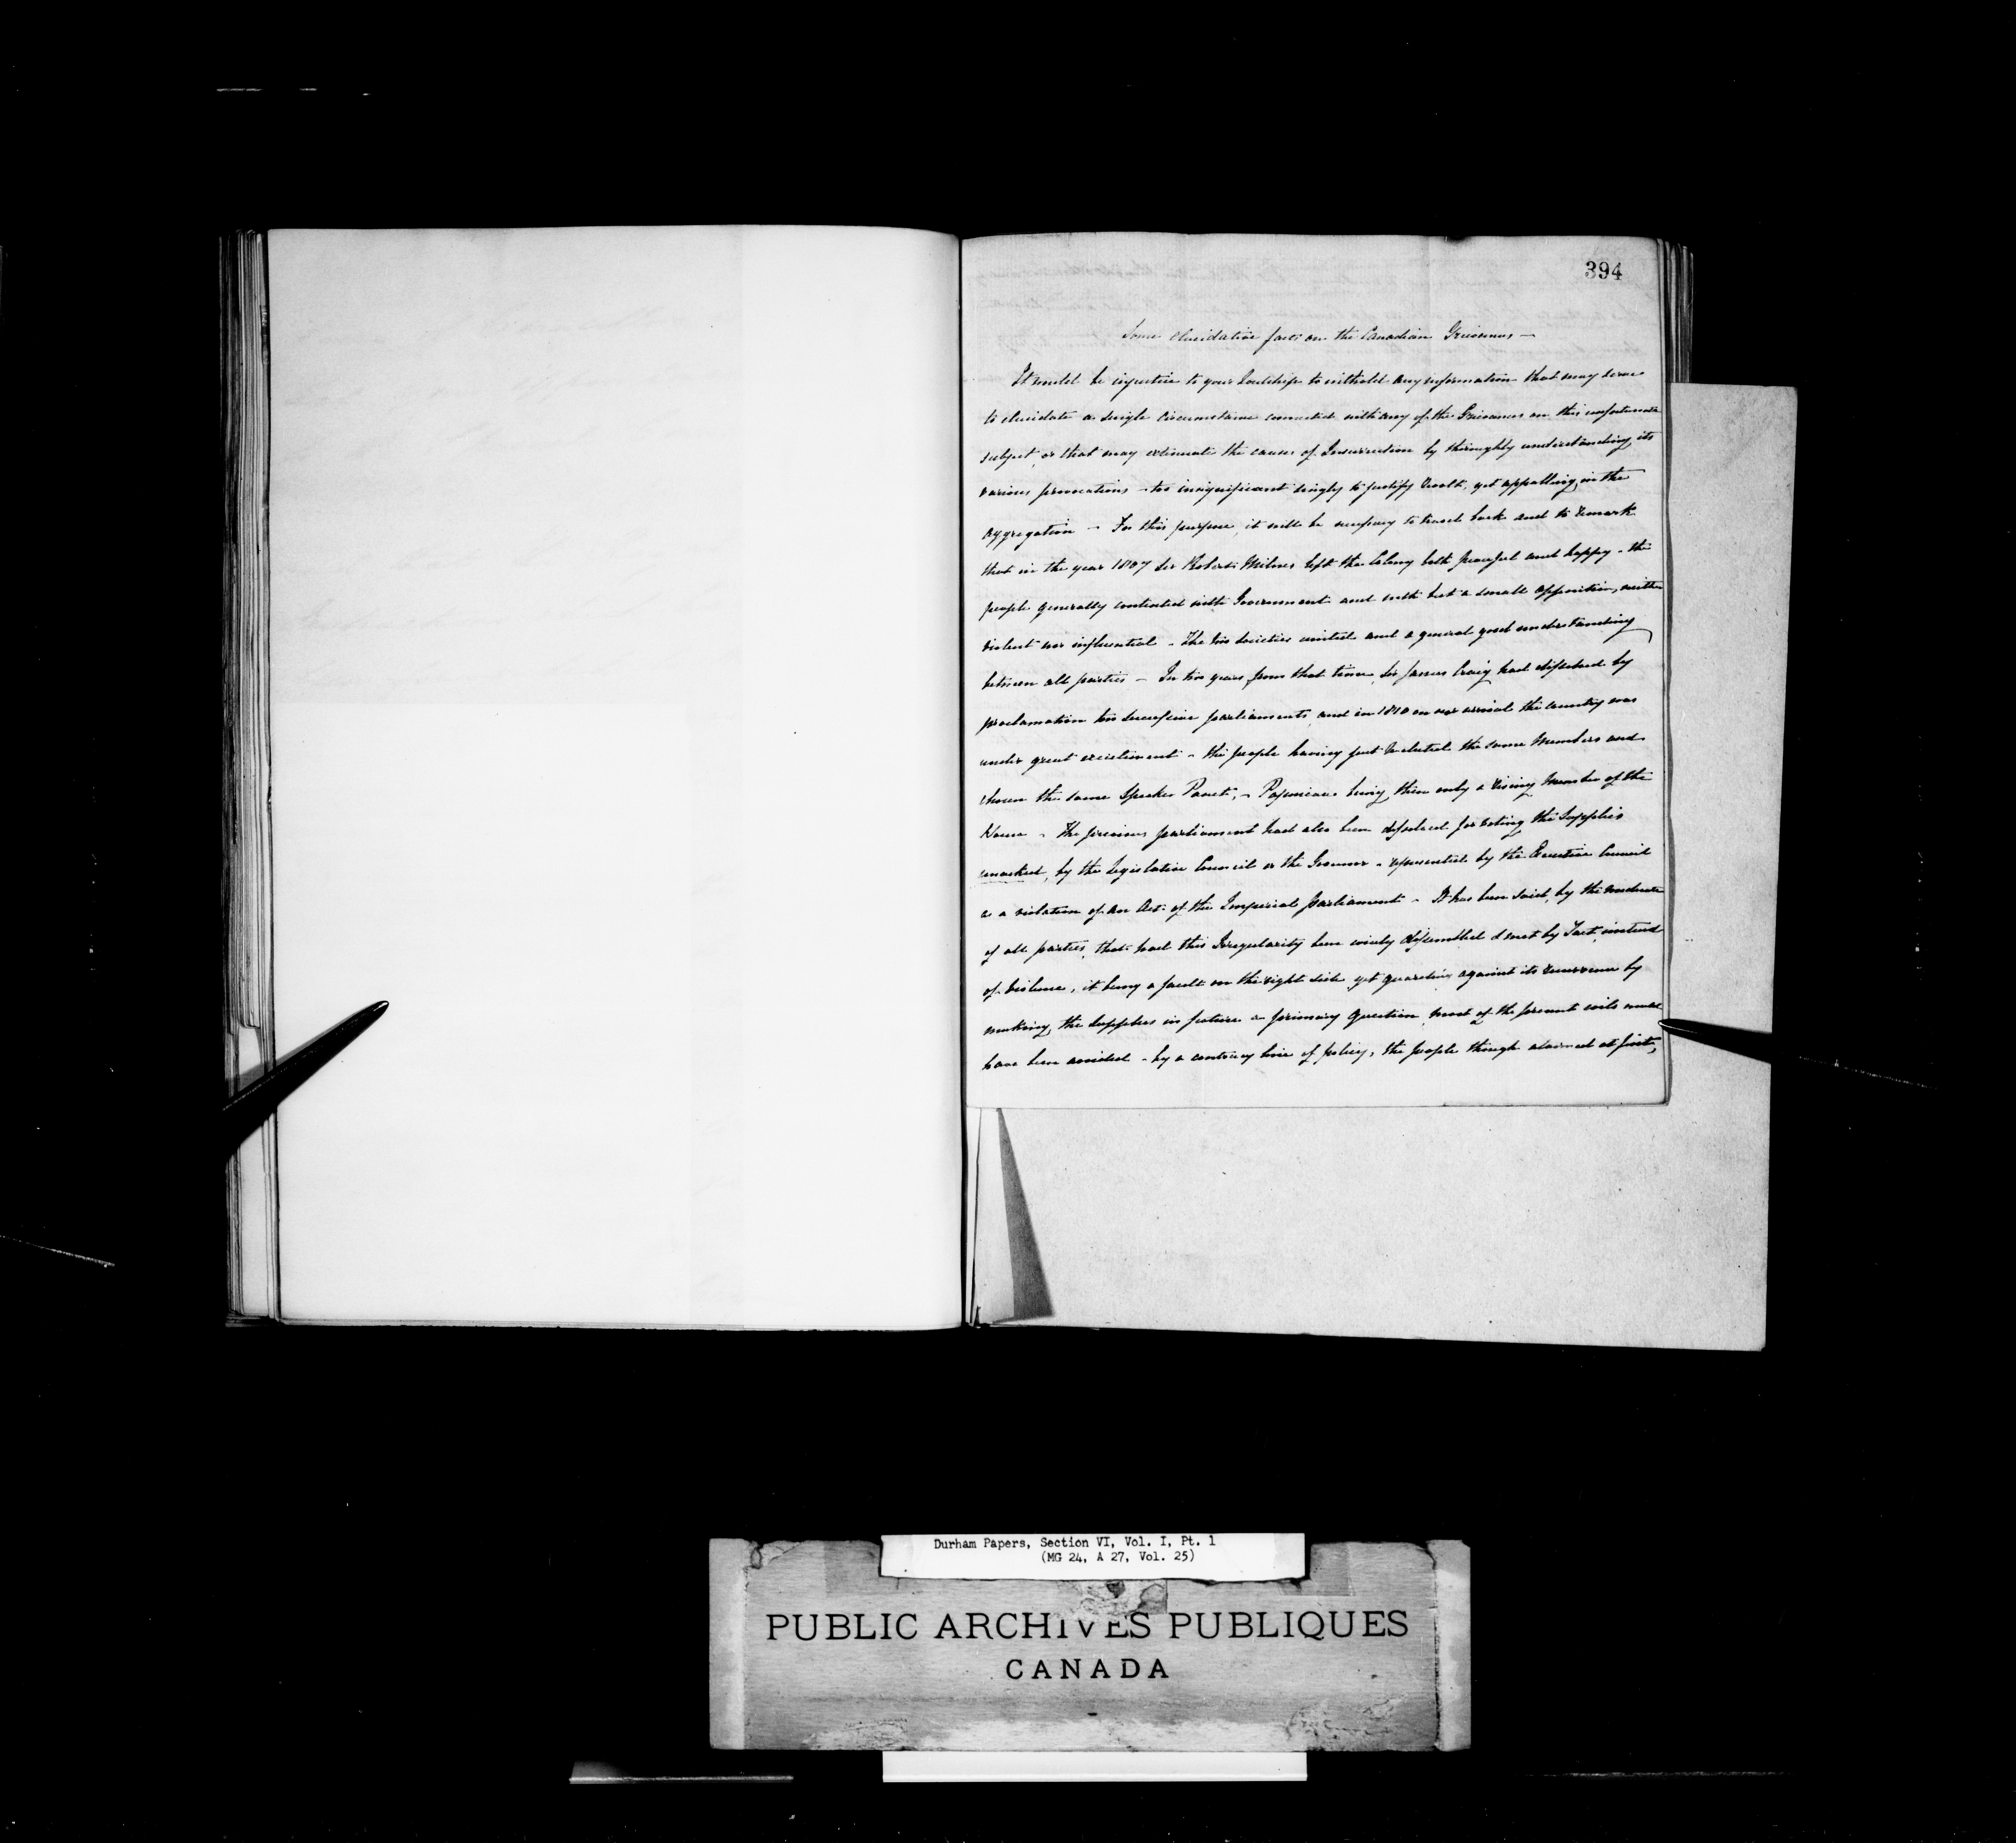 394
Some elucidative facts on the Canadian Grievances —
It would be injustice to your Lordship to withold any information that may serve
to elucidate a single circumstance connected with any of the Grievances on this unfortunate
subject, or that may extenuate the causes of Insurrection by thoroughly understanding its
various provocations — too insignificant singly to justify revolt, yet appalling in the
aggregation — For this purpose, it will be necessary to travel back and to remark
that in the year 1807 Sir Robert Milnes left the Colony both peaceful and happy – the
people generally contented with Government and with but a small opposition, neither
violent nor influential – The two societies united and a general good understanding
between all parties – In two years from that time, Sir James Craig had dissolved by
proclamation two successive parliaments, and in 1810 on our arrival the country was
under great excitement – the people having just re elected the same Members and
chosen the same Speaker Panet, – Papineau being then only a rising Member of the
House – The previous parliament had also been dissolved for voting the Supplies
unasked, by the Legislative Council or the Governor – represented by the Executive Council
as a violation of an Act of the Imperial Parliament – It has been said, by the moderate
of all parties, that had this Irregularity been wisely dissembled & met by Tact, instead
of violence, it being a fault on the right side yet guarding against its recurrence by
making the Supplies in future a primary Question, most of the present evils would
have been avoided – by a contrary line of policy, the people though alarmed at first,
Durham Papers, Section VI, Vol. I, Pt. 1
(MG 24, A 27, Vol. 25)
PUBLIC ARCHIVES PUBLIQUES
CANADA